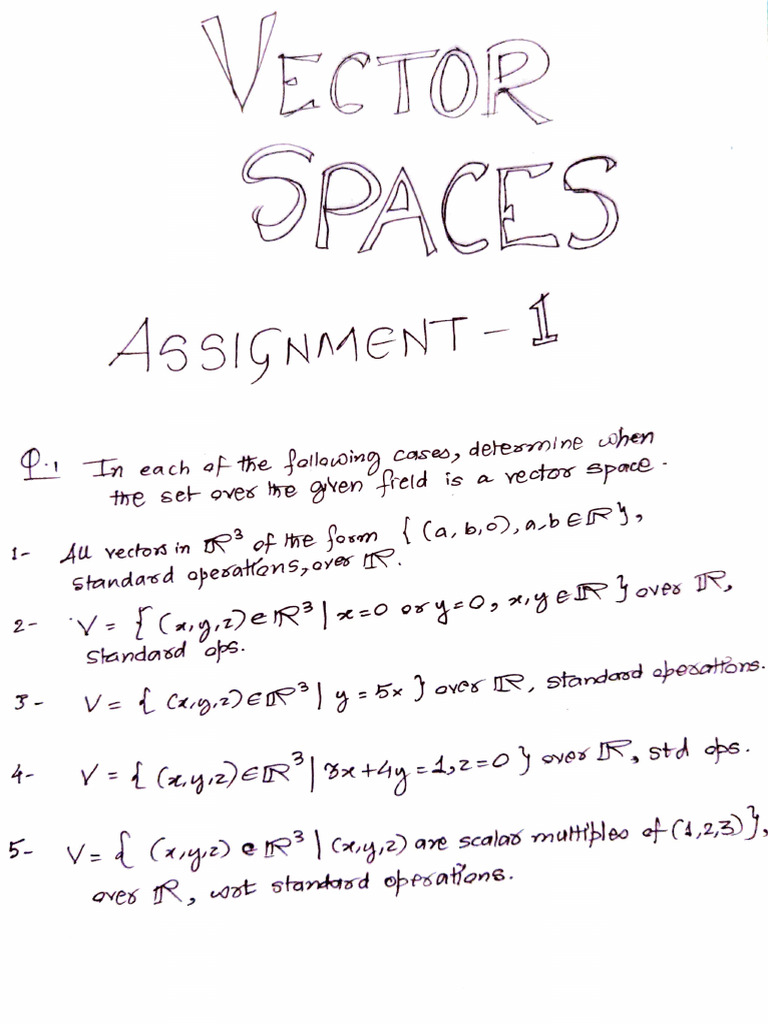 VECTOR
SPACES
ASSIGNMENT - 1
Q.1 In each of the following cases, determine when
the set over the given field is a vector space.
1- All vectors in ℝ³ of the form {(a,b,0), a,b∈ℝ},
standard operations, over ℝ.
2- V = {(x,y,z)∈ℝ³ | x=0 or y=0, x,y∈ℝ} over ℝ,
standard ops.
3- V = {(x,y,z)∈ℝ³ | y = 5x} over ℝ, standard operations.
4- V = {(x,y,z)∈ℝ³ | 3x+4y=1, z=0} over ℝ, std ops.
5- V = {(x,y,z)∈ℝ³ | (x,y,z) are scalar multiples of (1,2,3)},
over ℝ, wrt standard operations.